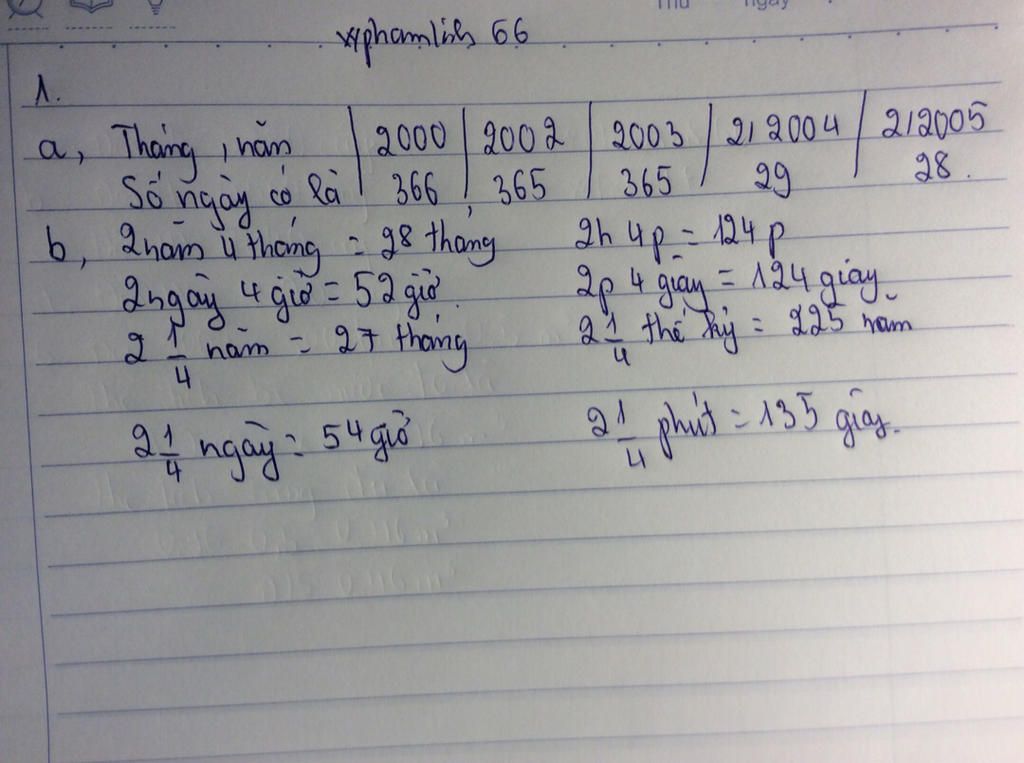 Thứ ngày
xyphamlinh 66
1.
a, Tháng, năm | 2000 | 2002 | 2003 | 2/2004 | 2/2005
Số ngày có là 366 365 365 29 28.
b, 2 năm 4 tháng = 28 tháng 2h 4p = 124 p
2 ngày 4 giờ = 52 giờ. 2p 4 giây = 124 giây
2 1/4 năm = 27 tháng 2 1/4 thế kỷ = 225 năm
2 1/4 ngày = 54 giờ 2 1/4 phút = 135 giây.